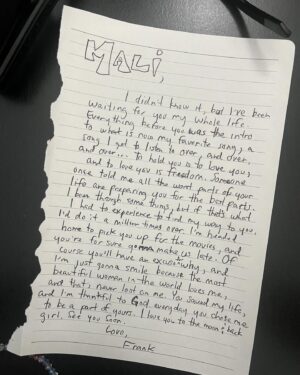 MALi,
I didn't know it, but I've been
waiting for you my whole life.
Everything before you was the intro
to what is now my favorite song, a
song I get to listen to over, and over,
and over... To hold you is to love you,
and to love you is freedom. Someone
once told me all the worst parts of your
life are preparing you for the best parts.
I been though some things, but if that's what
I had to experience to find my way to you.
I'd do it a million times over. I'm headed
home to pick you up for the movies, and
you're for sure gonna make us late. Of
course you'll have an excuse why, and
I'm just gonna smile because the most
beautiful woman in the world loves me,
and that's never lost on me. You saved my life,
and I'm thankful to God everyday you chose me
to be a part of yours. I love you to the moon & back
girl. See you soon.
Love,
Frank